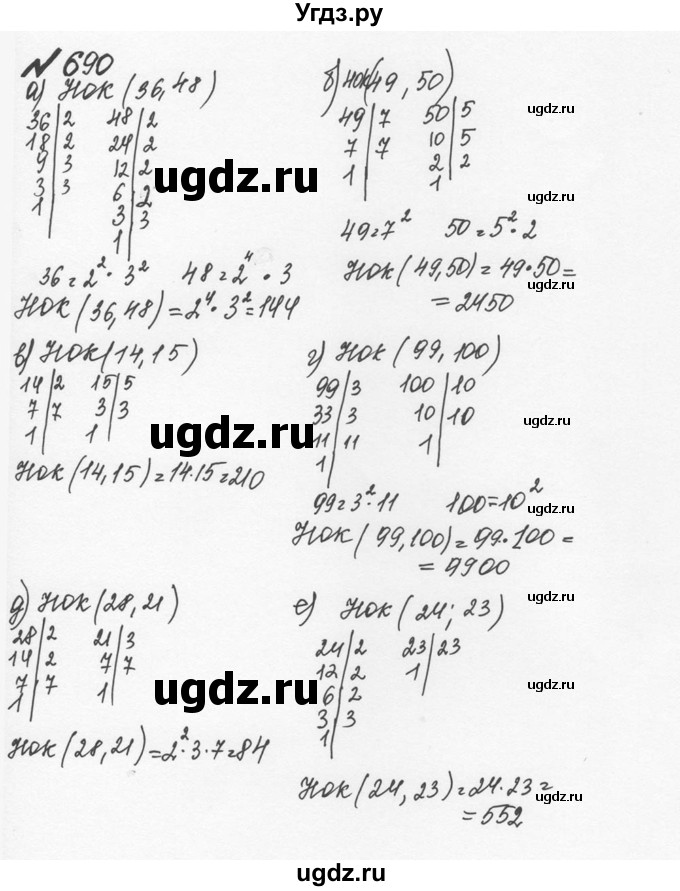 Угдз.ру
№ 690
а) НОК (36,48)
36|2 48|2
18|2 24|2
9|3 12|2
3|3 6|2
1| 3|3
1|
36=2²·3² 48=2⁴·3
НОК (36,48)=2⁴·3²=144
б) НОК(49,50)
49|7 50|5
7|7 10|5
1| 2|2
1|
49=7² 50=5²·2
НОК(49,50)=49·50=
=2450
в) НОК(14,15)
14|2 15|5
7|7 3|3
1| 1|
НОК(14,15)=14·15=210
г) НОК (99,100)
99|3 100|10
33|3 10|10
11|11 1|
1|
99=3²·11 100=10²
НОК(99,100)=99·100=
=9900
д) НОК(28,21)
28|2 21|3
14|2 7|7
7|7 1|
1|
НОК(28,21)=2²·3·7=84
е) НОК (24; 23)
24|2 23|23
12|2 1|
6|2
3|3
1|
НОК(24,23)=24·23=
=552
ugdz.ru
ugdz.ru
ugdz.ru
ugdz.ru
ugdz.ru
ugdz.ru
ugdz.ru
ugdz.ru
ugdz.ru
ugdz.ru
ugdz.ru
ugdz.ru